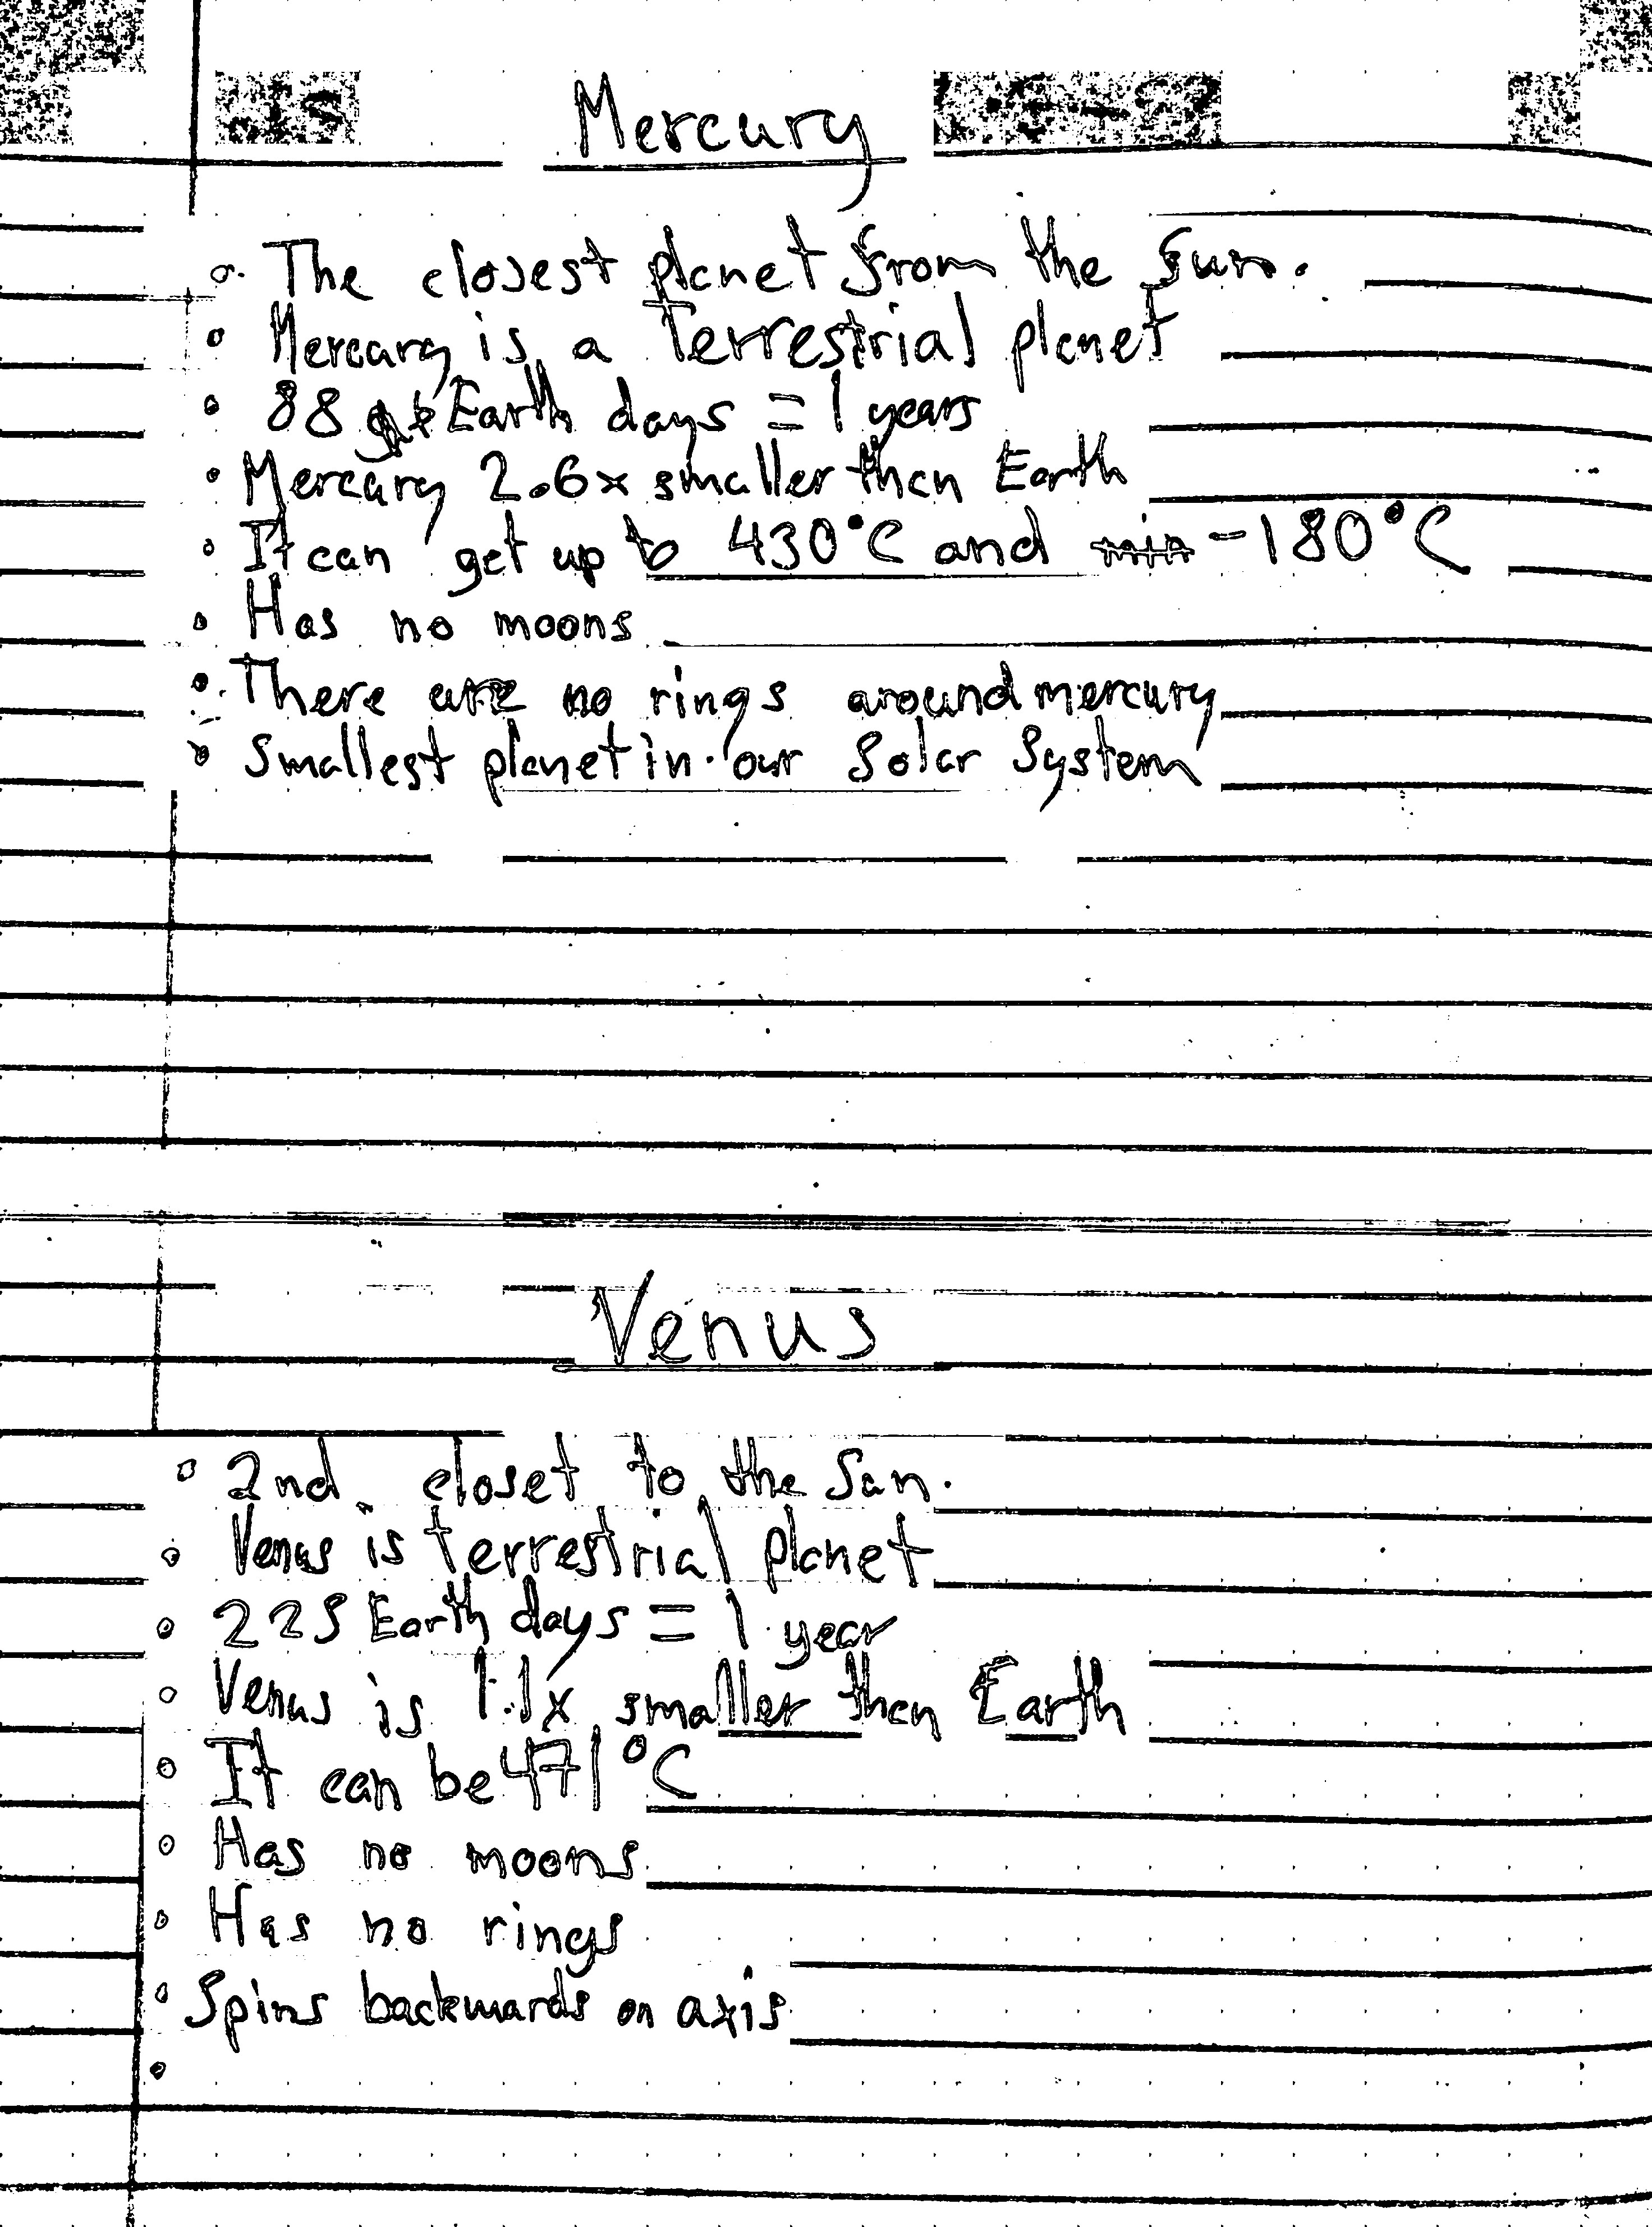 Mercury
The closest planet from the Sun.
Mercury is a terrestrial planet
88 Earth days = 1 years
Mercury 2.6x smaller then Earth
It can get up to 430°C and min -180°C
Has no moons
There are no rings around mercury
Smallest planet in our Solar System
Venus
2nd closet to the Sun.
Venus is terrestrial planet
225 Earth days = 1 year
Venus is 1.1x smaller then Earth
It can be 471°C
Has no moons
Has no rings
Spins backwards on axis